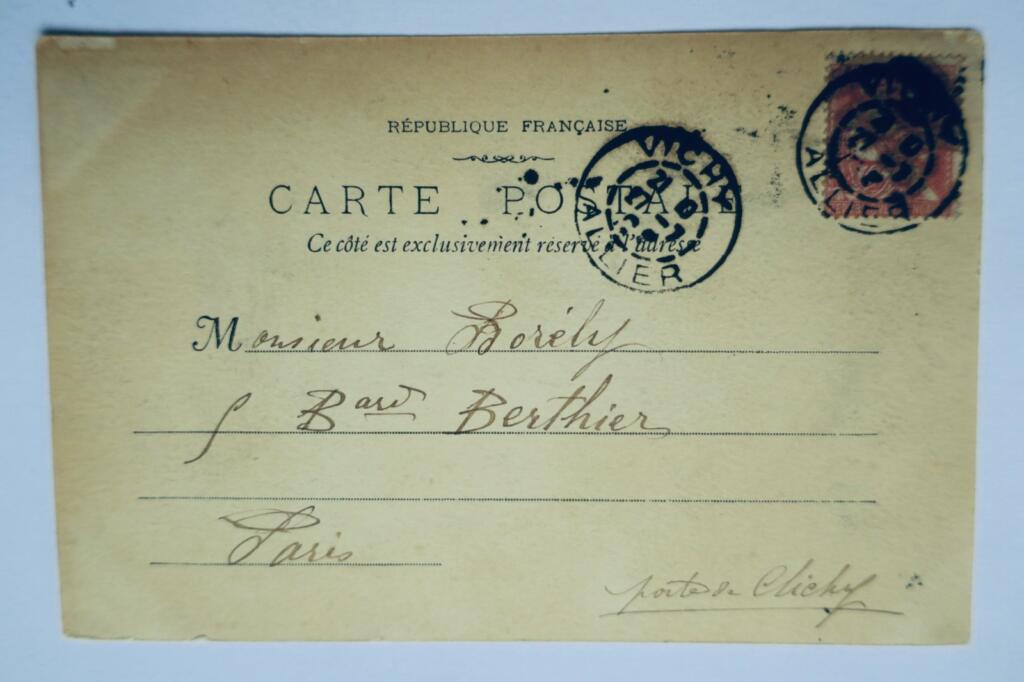 RÉPUBLIQUE FRANÇAISE
CARTE POSTALE
Ce côté est exclusivement réservé à l'adresse
VICHY
ALLIER
VICHY
ALLIER
Monsieur Borély
5 Bard Berthier
Paris
porte de Clichy